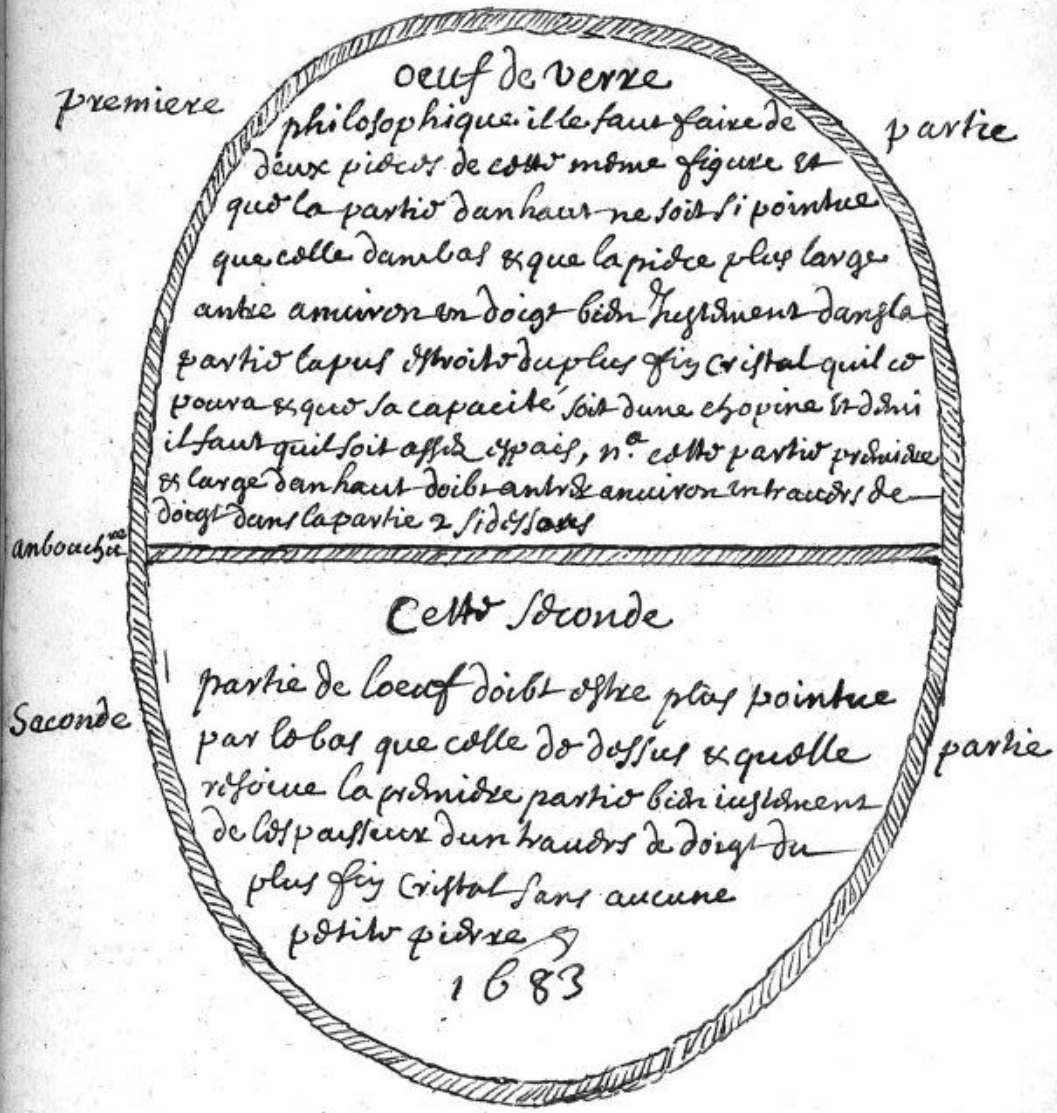 oeuf de verre
premiere
partie
philosophique il le faut faire de
deux pieces de cette méme figure et
que la partie danhaut ne soit si pointue
que celle dambas & que la piece plus large
antre anuiron un doigt bien Justement dans la
partie la pus estroite du plus fin Cristal quil ce
poura & que sa capacité soit dune chopine et demi
il faut quil soit assez espais, n.a cette partie premiere
& large danhaut doibt antrer anuiron un trauers de
doigt dans la partie 2 si dessous
anbouchure
Cette seconde
partie de loeuf doibt estre plus pointue
Saconde
par le bas que celle de dessus & quelle
partie
resoiue la premiere partie bien iustement
de lespaisseur dun trauers de doigt du
plus fin Cristal sans aucune
petite pierre
1683